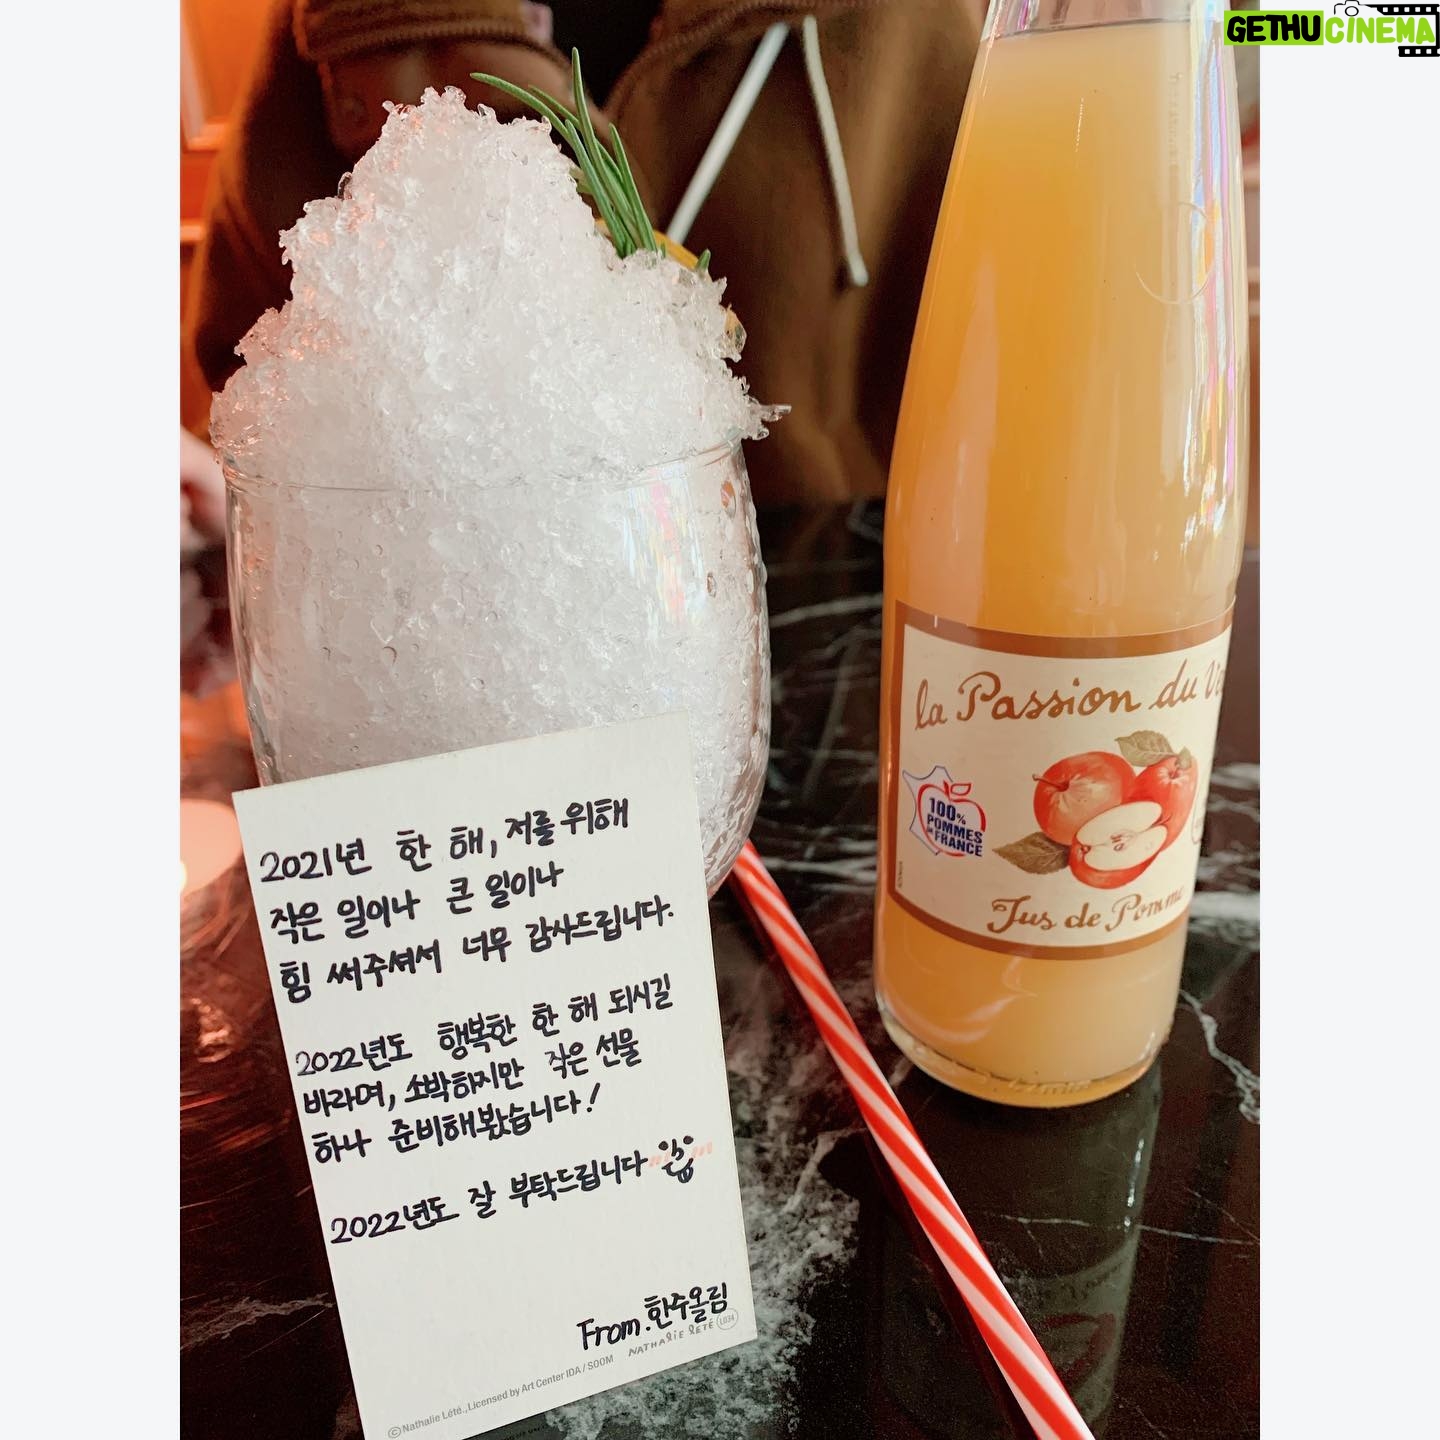 GETHUCINEMA
2021년 한 해, 저를 위해
작은 일이나 큰 일이나
힘 써주셔서 너무 감사드립니다.
2022년도 행복한 한 해 되시길
바라며, 소박하지만 작은 선물
하나 준비해봤습니다!
2022년도 잘 부탁드립니다
From. 한주올림
NATHALIE LÉTÉ L034
©Nathalie Lété., Licensed by Art Center IDA / SOOM
la Passion du
100%
POMMES
DE FRANCE
Jus de Pomme